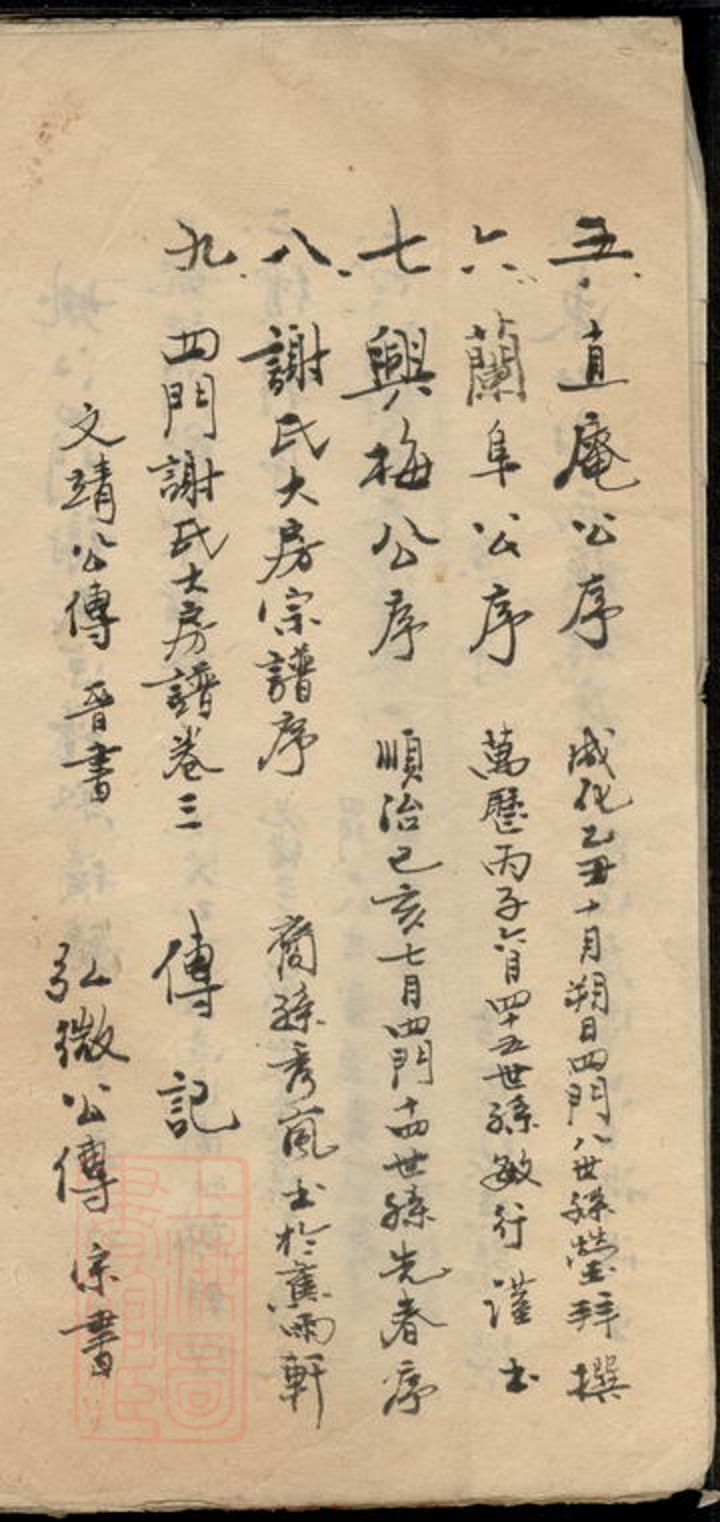 五、直庵公序 成化乙丑十月朔日四門八世孫瑩拜撰
六、蘭阜公序 萬歷丙子六月四十五世孫敏行謹書
七、興梅公序 順治己亥七月四門十四世孫先春序
八、謝氏大房宗譜序 裔孫秀嵐書於蕉雨軒
九、四門謝氏大房譜卷三 傳記
文靖公傳 晉書 弘微公傳 宋書